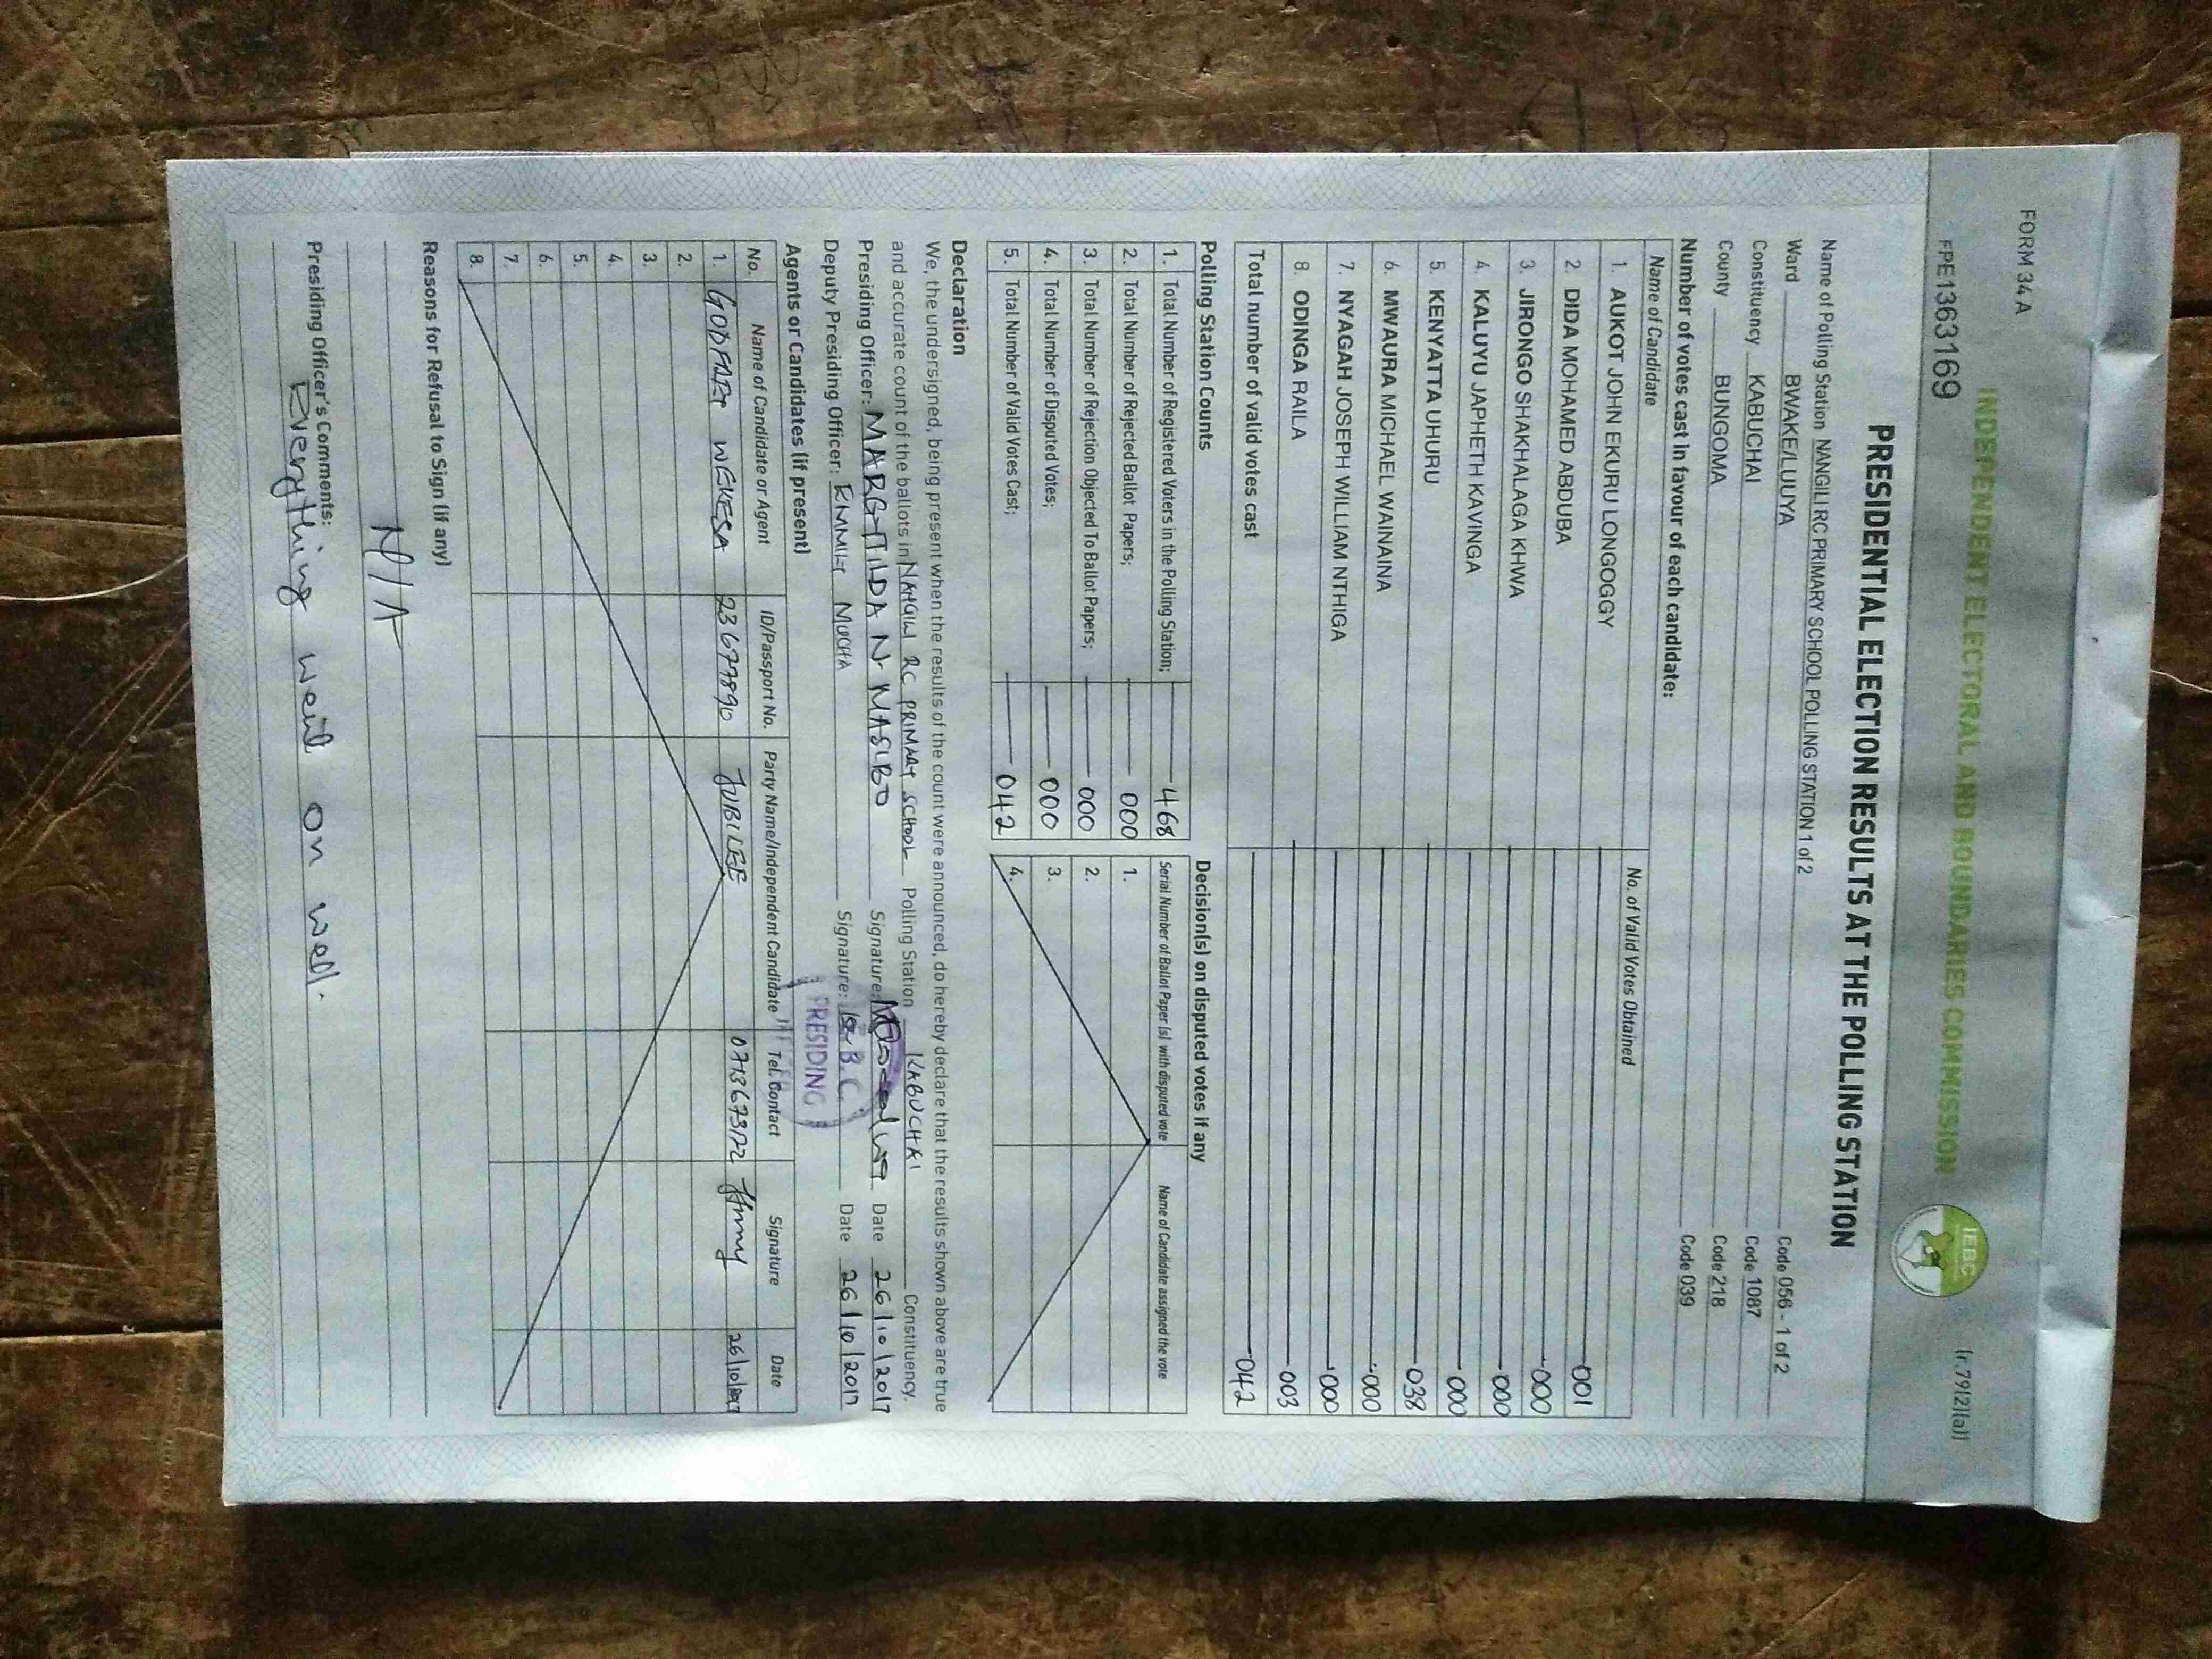 FORM 34 A
(r.79(2)(a))
FPE1363169
INDEPENDENT ELECTORAL AND BOUNDARIES COMMISSION
IEBC
PRESIDENTIAL ELECTION RESULTS AT THE POLLING STATION
Name of Polling Station NANGILI RC PRIMARY SCHOOL POLLING STATION 1 of 2 Code 056 - 1 of 2
Ward BWAKE/LUUYA Code 1087
Constituency KABUCHAI Code 218
County BUNGOMA Code 039
Number of votes cast in favour of each candidate:
Name of Candidate No. of Valid Votes Obtained
1. AUKOT JOHN EKURU LONGOGGY 001
2. DIDA MOHAMED ABDUBA 000
3. JIRONGO SHAKHALAGA KHWA 000
4. KALUYU JAPHETH KAVINGA 000
5. KENYATTA UHURU 038
6. MWAURA MICHAEL WAINAINA 000
7. NYAGAH JOSEPH WILLIAM NTHIGA 000
8. ODINGA RAILA 003
Total number of valid votes cast 042
Polling Station Counts
1. Total Number of Registered Voters in the Polling Station; 468
2. Total Number of Rejected Ballot Papers; 000
3. Total Number of Rejection Objected To Ballot Papers; 000
4. Total Number of Disputed Votes; 000
5 Total Number of Valid Votes Cast; 042
Decision(s) on disputed votes if any
Serial Number of Ballot Paper (s) with disputed vote Name of Candidate assigned the vote
1.
2.
3.
4.
Declaration
We, the undersigned, being present when the results of the count were announced, do hereby declare that the results shown above are true
and accurate count of the ballots in NANGILI RC PRIMARY SCHOOL Polling Station KABUCHAI Constituency.
Presiding Officer: N. Signature: Date 26/10/2017
Deputy Presiding Officer: Signature: Date 26/10/2017
PRESIDING
Agents or Candidates (if present)
No. Name of Candidate or Agent ID/Passport No. Party Name/Independent Candidate Tel. Contact Signature Date
1. WEKESA 23677890 JUBILEE 0713673122 26/10/2017
2.
3.
4.
5.
6.
7.
8.
Reasons for Refusal to Sign (if any)
N/A
Presiding Officer's Comments:
Everything went on well.